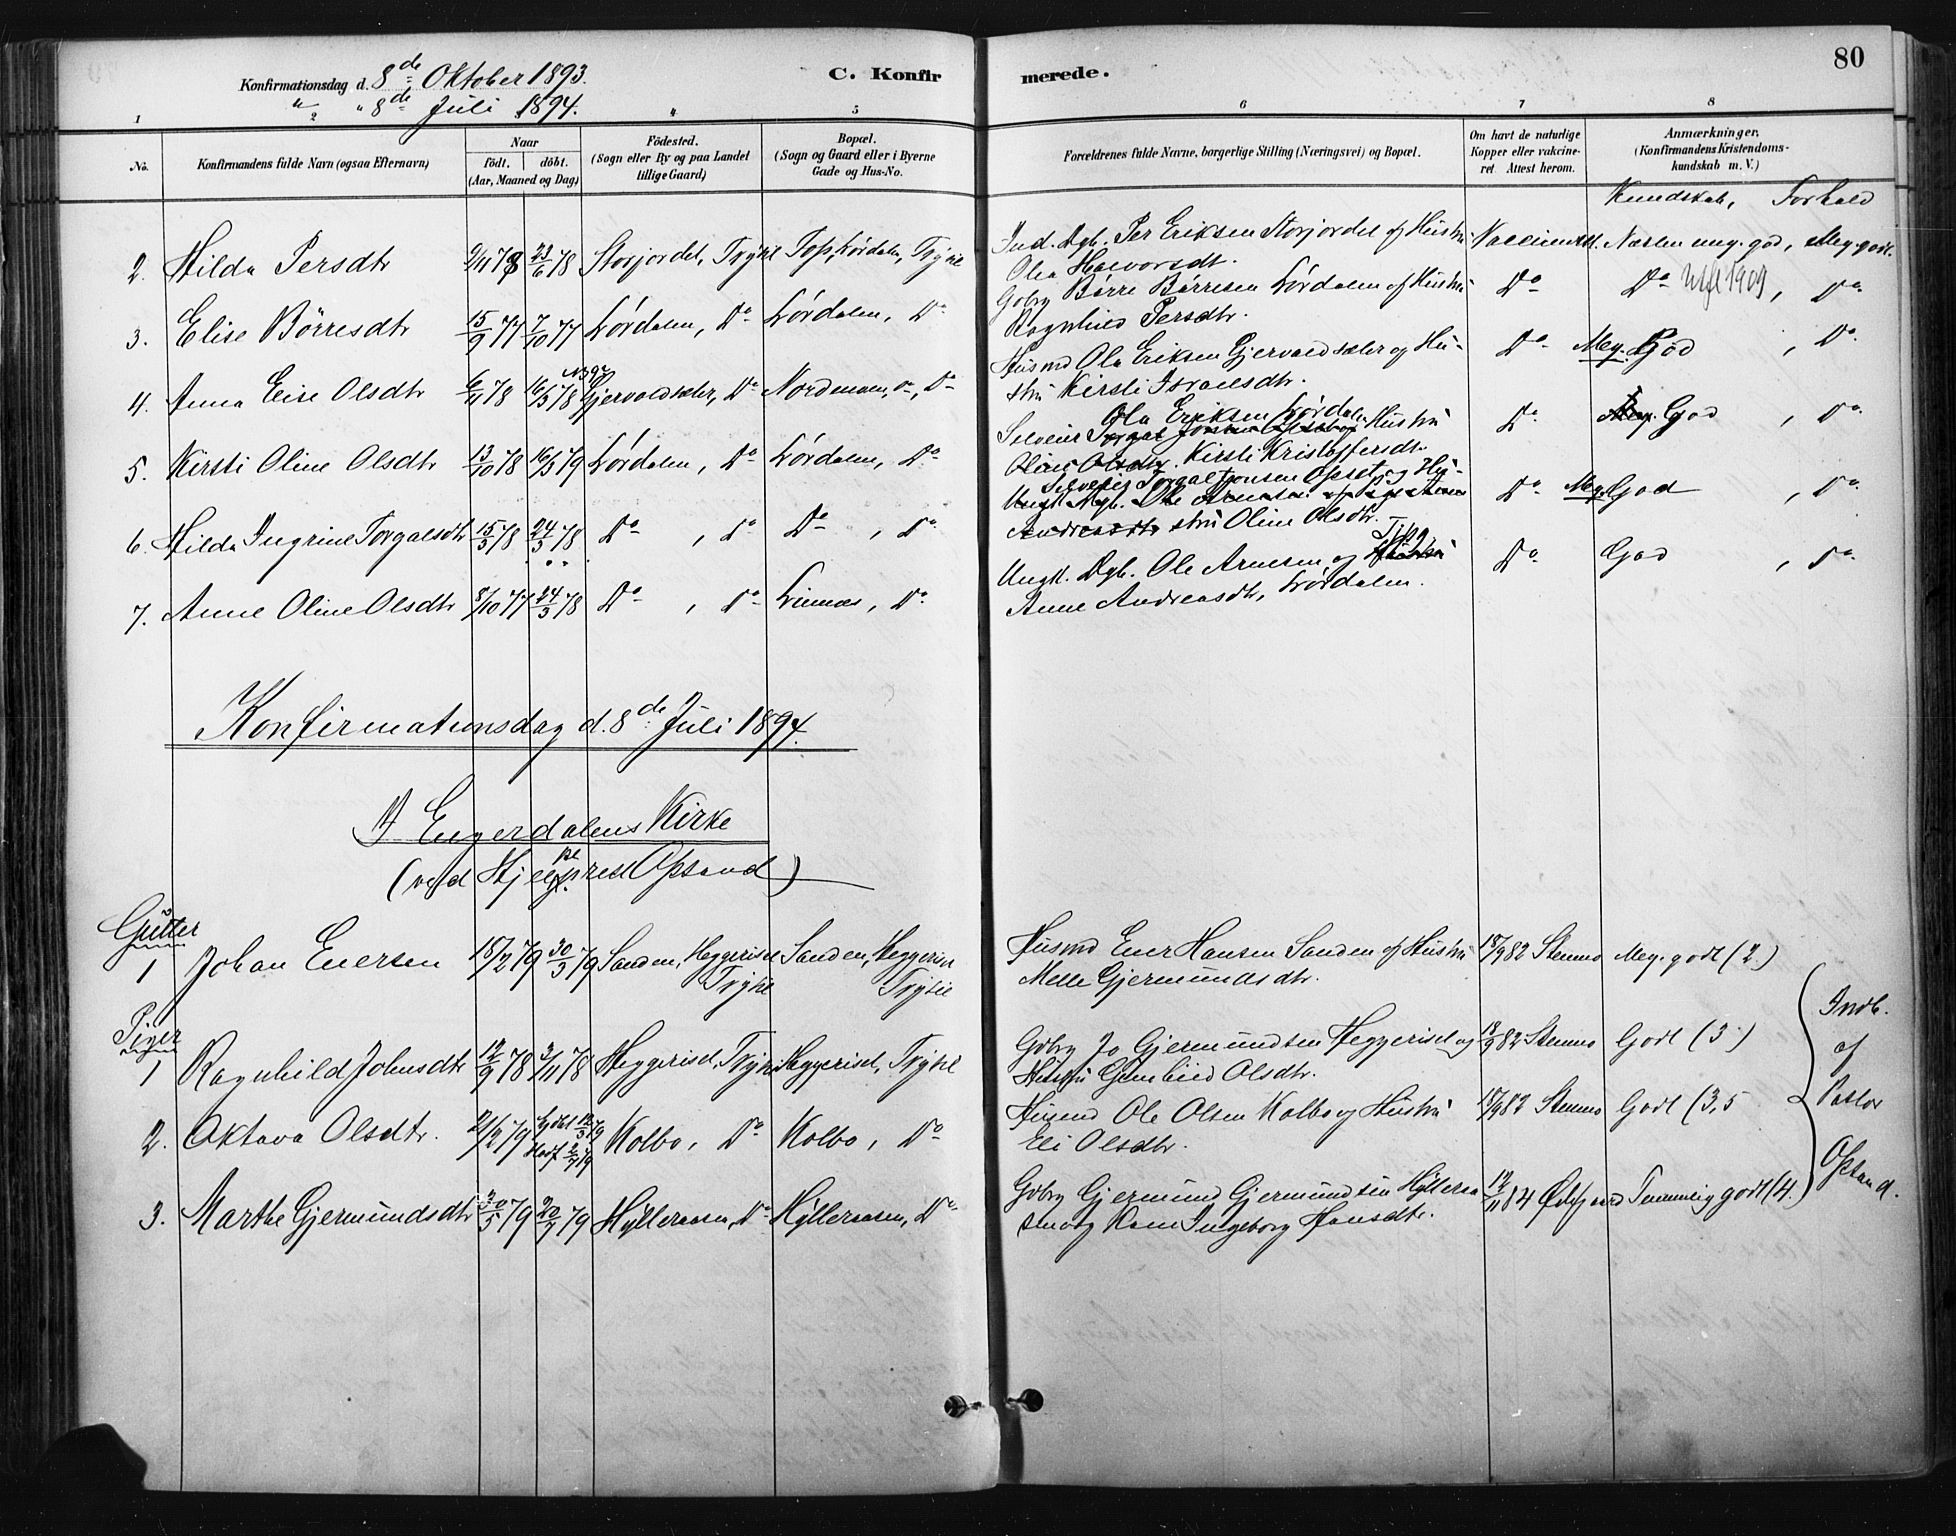 80
Konfirmationsdag d. 8de Oktober 1893.
" " 8de Juli 1894.
C. Konfirmerede.
1 2 4 5 6 7 8
No.
Konfirmandens fulde Navn (ogsaa Efternavn)
Naar
födt. döbt.
(Aar, Maaned og Dag)
Födested.
(Sogn eller By og paa Landet
tillige Gaard)
Bopæl.
(Sogn og Gaard eller i Byerne
Gade og Hus-No.
Forældrenes fulde Navne, borgerlige Stilling (Næringsvei) og Bopæl.
Om havt de naturlige
Kopper eller vakcine-
ret. Attest herom.
Anmærkninger.
(Konfirmandens Kristendoms-
kundskab m. V.)
Kundskab, Forhold
2. Hilda Persdtr 9/11 78 23/6 78 Storjordet, Trysil Top, Lördalen, Trysil
Ind. Dgb. Per Eriksen Storjordet og Hustru
Olea Halvorsdt.
Næsten meg. god, Meg. godt.
3. Elise Börresdtr 15/9 77 7/10 77 Lördalen, Do Lördalen, Do
Gbbr Börre Börresen Lördalen og Hustru
Ragnhild Persdtr.
Do Do 1909, Do
4. Anna Elise Olsdtr 6/11 78 16/3 78 Gjervoldsæter, Do Nordmoen, Do
Husmd Ola Eriksen Gjervoldsæter og Hu-
stru Kirsti Israelsdtr.
Do Meg. God, Do
5. Kirsti Oline Olsdtr 13/10 78 16/3 79 Lördalen, Do Lördalen, Do
Ola Eriksen Lördalen
Selveier Hustru
Kirsti Kristoffersdt.
Do God, Do
6. Hilda Ingrine Torgalsdtr 15/3 78 24/3 78 Do, Do Do, Do
Selveier Torgal Jonsen Opset og Hu-
stru Oline Olsdtr.
Do Meg. God, Do
7. Anne Oline Olsdtr 8/10 77 24/3 78 Do, Do Linnes, Do
Ungk. Dgb. Ole Arnesen og Pige
Anne Andreasdtr, Lördalen.
Do God, Do
Konfirmationsdag d. 8de Juli 1894.
1) Engerdalens Kirke
(ved Hjelpepræst Opsand)
Gutter
1 Johan Enersen 18/2 79 30/3 79 Sanden, Heggeriset Trysil Sanden, Heggeriset Trysil
Husmd Ener Hansen Sanden og Hustru
Melle Gjermundsdtr.
18/9 82 Stenmo Meg. godt (2.)
Piger
1 Ragnhild Johnsdtr 12/9 78 3/11 78 Heggeriset, Trysil Heggeriset, Trysil
Gbbr Jo Gjermundsen Heggeriset og
Hustru Gunbild Olsdtr.
18/9 82 Stenmo Godt (3)
2. Oktava Olsdtr. 2/2 79 Kolbo, Do Kolbo, Do
Husmd Ole Olsen Kolbo og Hustru
Eli Olsdtr.
18/9 82 Stenmo Godt (3,5
3. Marthe Gjermundsdtr 30/5 79 20/7 79 Hylleraasen, Do Hylleraasen, Do
Gbbr Gjermund Gjermundsen Hylleraa
sen og Kone Ingeborg Hansdtr.
12/11 84 Temmelig godt (4.)
Indb.
af
Pastor
Opsand.